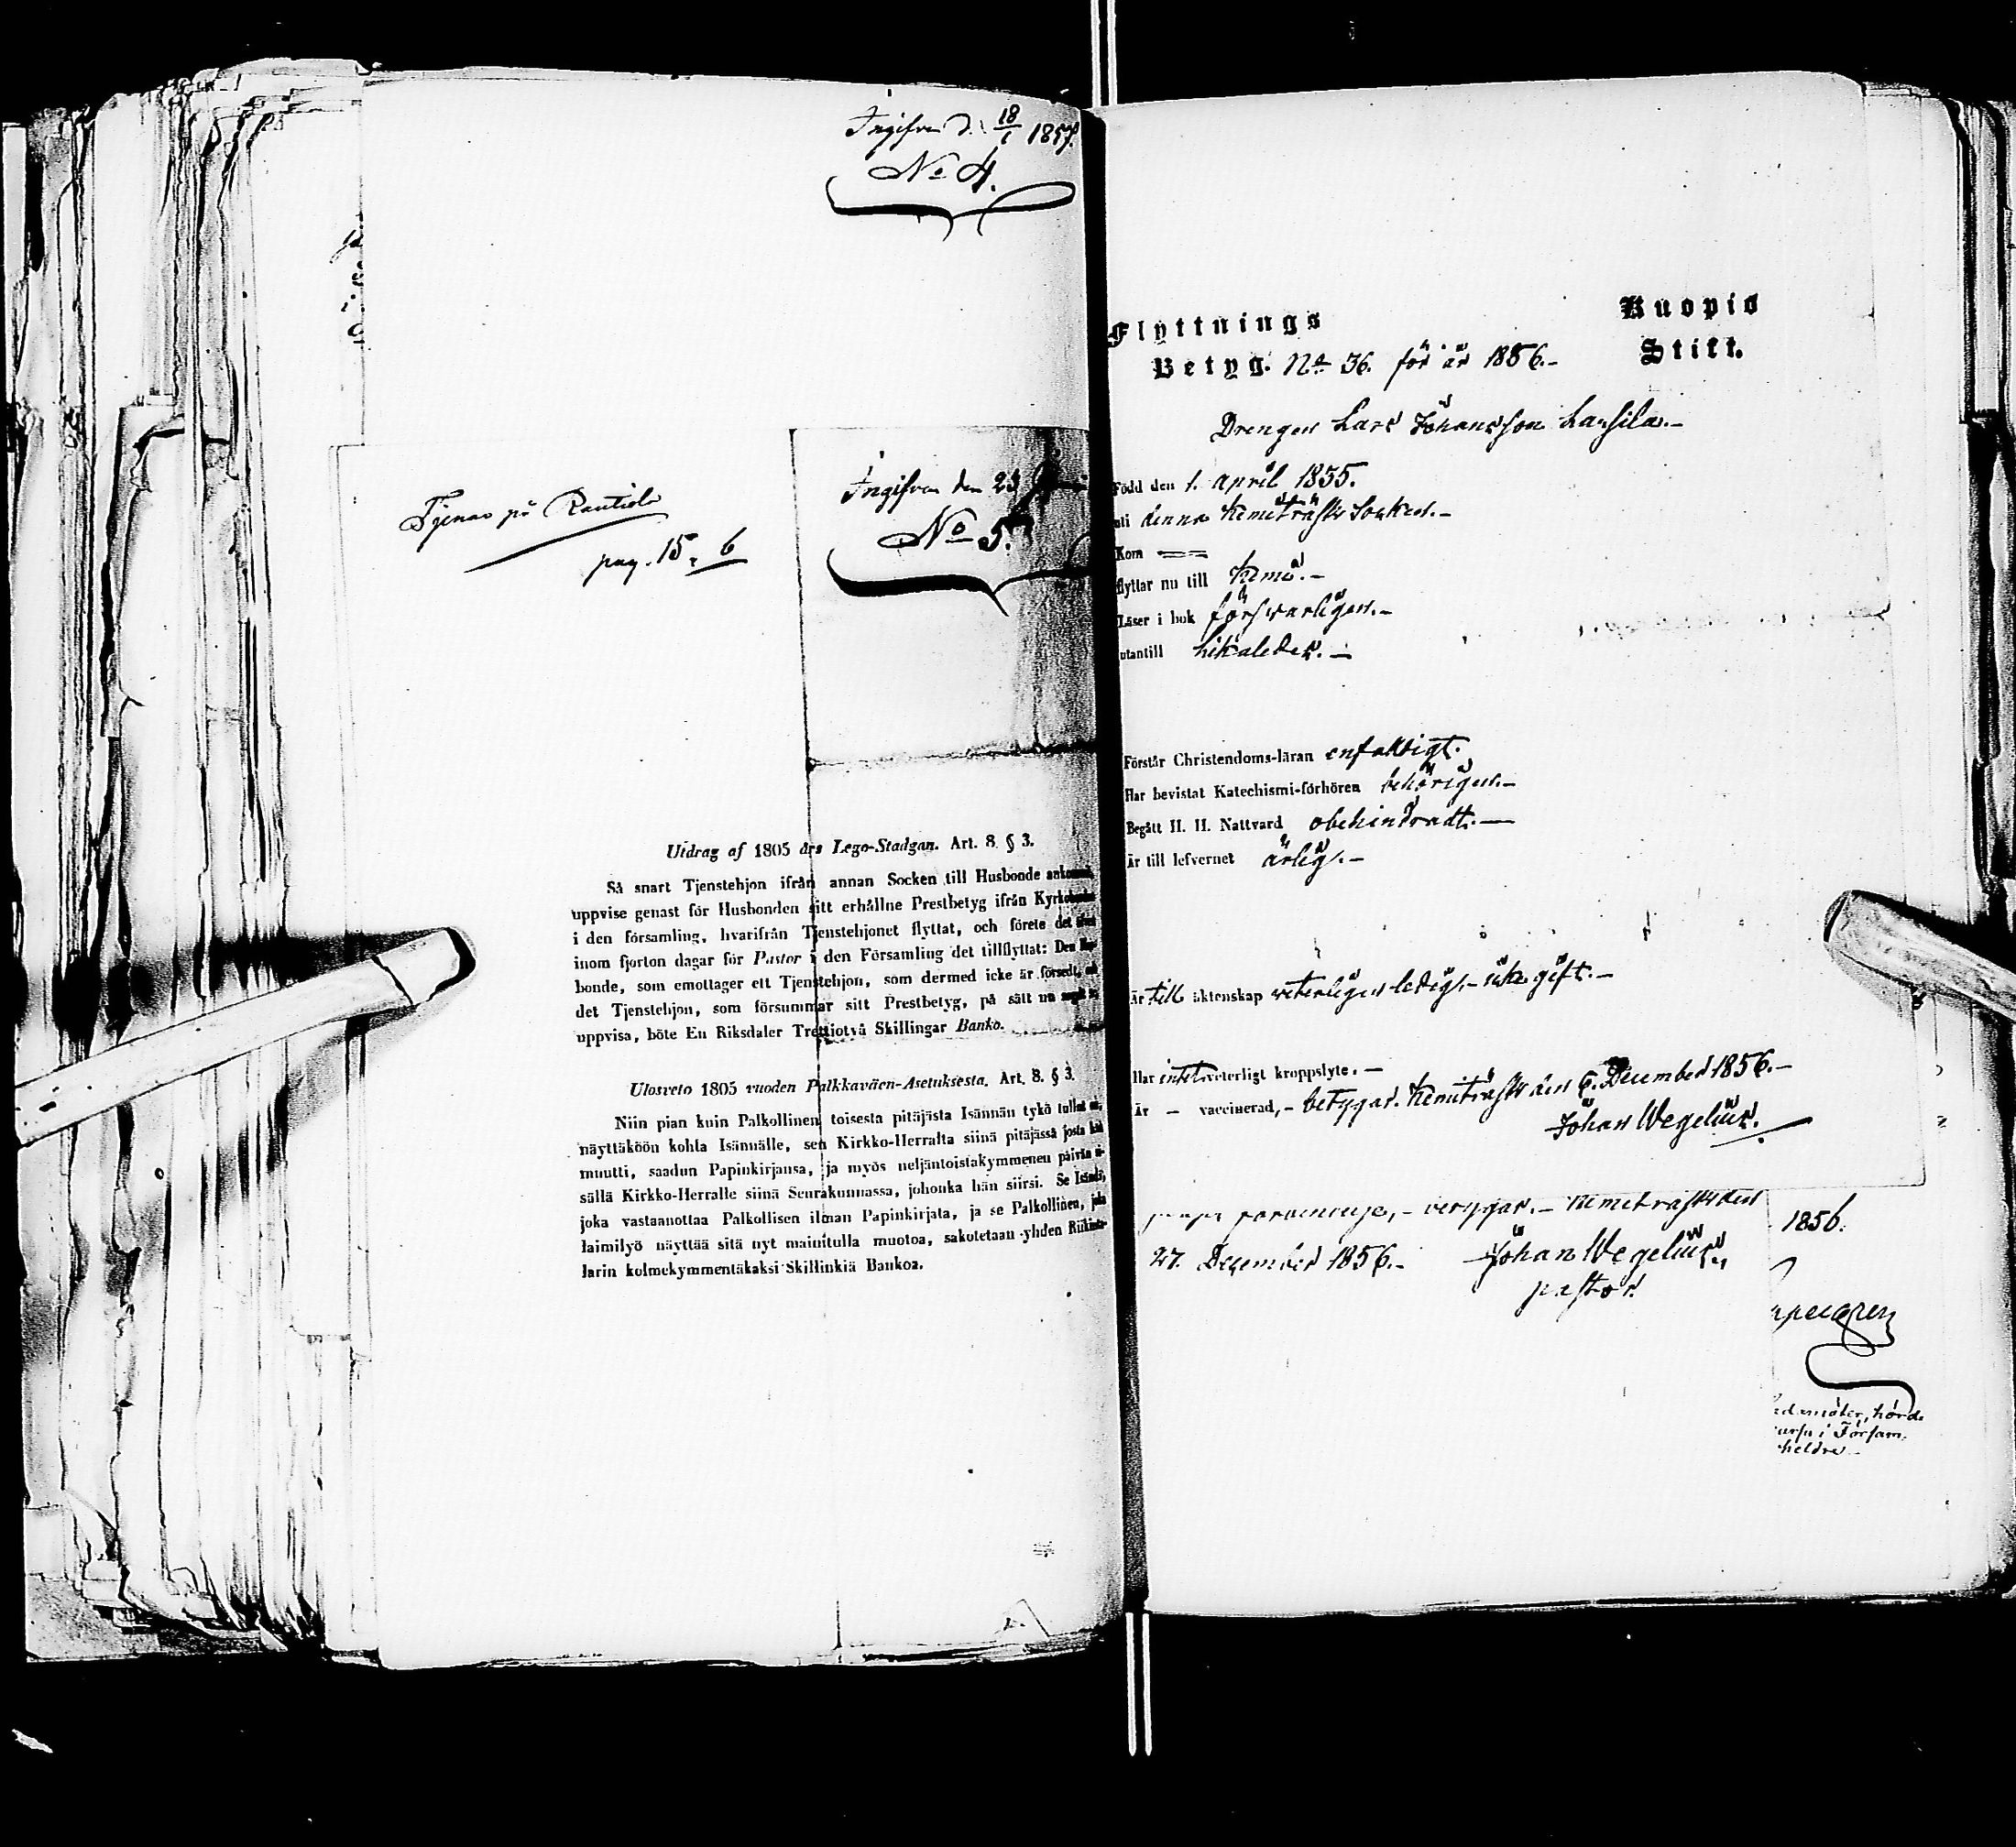 Ingifven d. 18/1 1857.
No 4.
Tjenar på Rautiola
pag. 15. 6
Ingifven den 23
No 5.
Utdrag af 1805 års Lego-Stadgan. Art. 8. § 3.
Så snart Tjenstehjon ifrån annan Socken till Husbonde
uppvise genast för Husbonden sitt erhållne Prestbetyg ifrån
i den församling, hvarifrån Tjenstehjonet flyttat, och förete det
inom fjorton dagar för Pastor i den Församling det tillflyttat: Den
bonde, som emottager ett Tjenstehjon, som dermed icke är försedt,
det Tjenstehjon, som försummar sitt Prestbetyg, på sätt nu
uppvisa, böte En Riksdaler Trettiotvå Skillingar Banko.
Ulosveto 1805 vuoden Palkkaväen-Asetuksesta. Art. 8. § 3.
Niin pian kuin Palkollinen toisesta pitäjästä Isännän tykö tullut
näyttäköön kohta Isännälle, sen Kirkko-Herralta siinä pitäjässä josta
muutti, saadun Papinkirjansa, ja myös neljäntoistakymmenen päivän
sällä Kirkko-Herralle siinä Seurakunnassa, johonka hän siirsi. Se
joka vastaanottaa Palkollisen ilman Papinkirjata, ja se Palkollinen, joka
laimilyö näyttää sitä nyt mainitulla muotoa, sakotetaan yhden
larin kolmekymmentäkaksi Skillinkiä Bankoa.
Flyttnings Kuopio
Betyg. No 36. för år 1856.- Stift.
Drengen Lars Johansson Lansila.-
Född den 1. april 1835.
uti denna Kemiträsk Socken.-
Kom
flyttar nu till Kemi.-
Läser i bok försvarligen.-
utantill likaledes.-
Förstår Christendoms-läran enfaldigt.
Har bevistat Katechismi-förhören behörigen.-
Begått H. H. Nattvard obehindradt.-
Är till lefvernet ärlig.-
Är till äktenskap veterligen ledig.- icke gift.-
Har intet veterligt kroppslyte.-
Är - vaccinerad,- betygar. Kemiträsk den 6. December 1856.-
Johan Wegelius.
betygar.- Kemiträsk den
27. December 1856.- Johan Wegelius,
pastor.
1856.
hörd.
i Församl